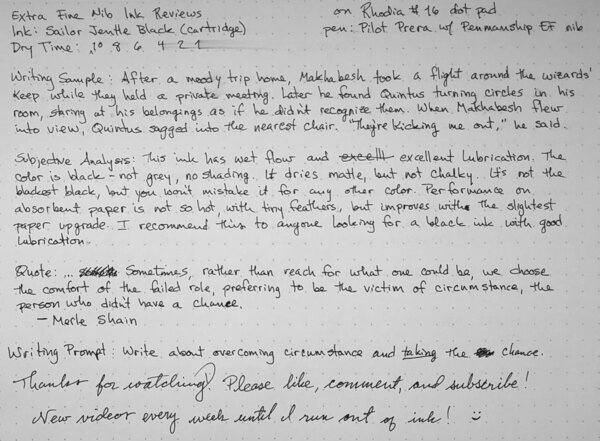 Extra Fine Nib Ink Reviews
on Rhodia #16 dot pad
Ink: Sailor Jentle Black (cartridge)
pen: Pilot Prera w/ Penmanship EF nib
Dry Time: 10 8 6 4 2 1
Writing Sample: After a moody trip home, Makhabesh took a flight around the wizards'
Keep while they held a private meeting. Later he found Quintus turning circles in his
room, staring at his belongings as if he didn't recognize them. When Makhabesh flew
into view, Quintus sagged into the nearest chair. "They're kicking me out," he said.
Subjective Analysis: This ink has wet flow and excellent lubrication. The
color is black - not grey, no shading. It dries matte, but not chalky. It's not the
blackest black, but you won't mistake it for any other color. Performance on
absorbent paper is not so hot, with tiny feathers, but improves with the slightest
paper upgrade. I recommend this to anyone looking for a black ink with good
lubrication.
Quote: ... Sometimes, rather than reach for what one could be, we choose
the comfort of the failed role, preferring to be the victim of circumstance, the
person who didn't have a chance.
- Merle Shain
Writing Prompt: Write about overcoming circumstance and taking the chance.
Thanks for watching! Please like, comment, and subscribe!
New videos every week until I run out of ink! :)